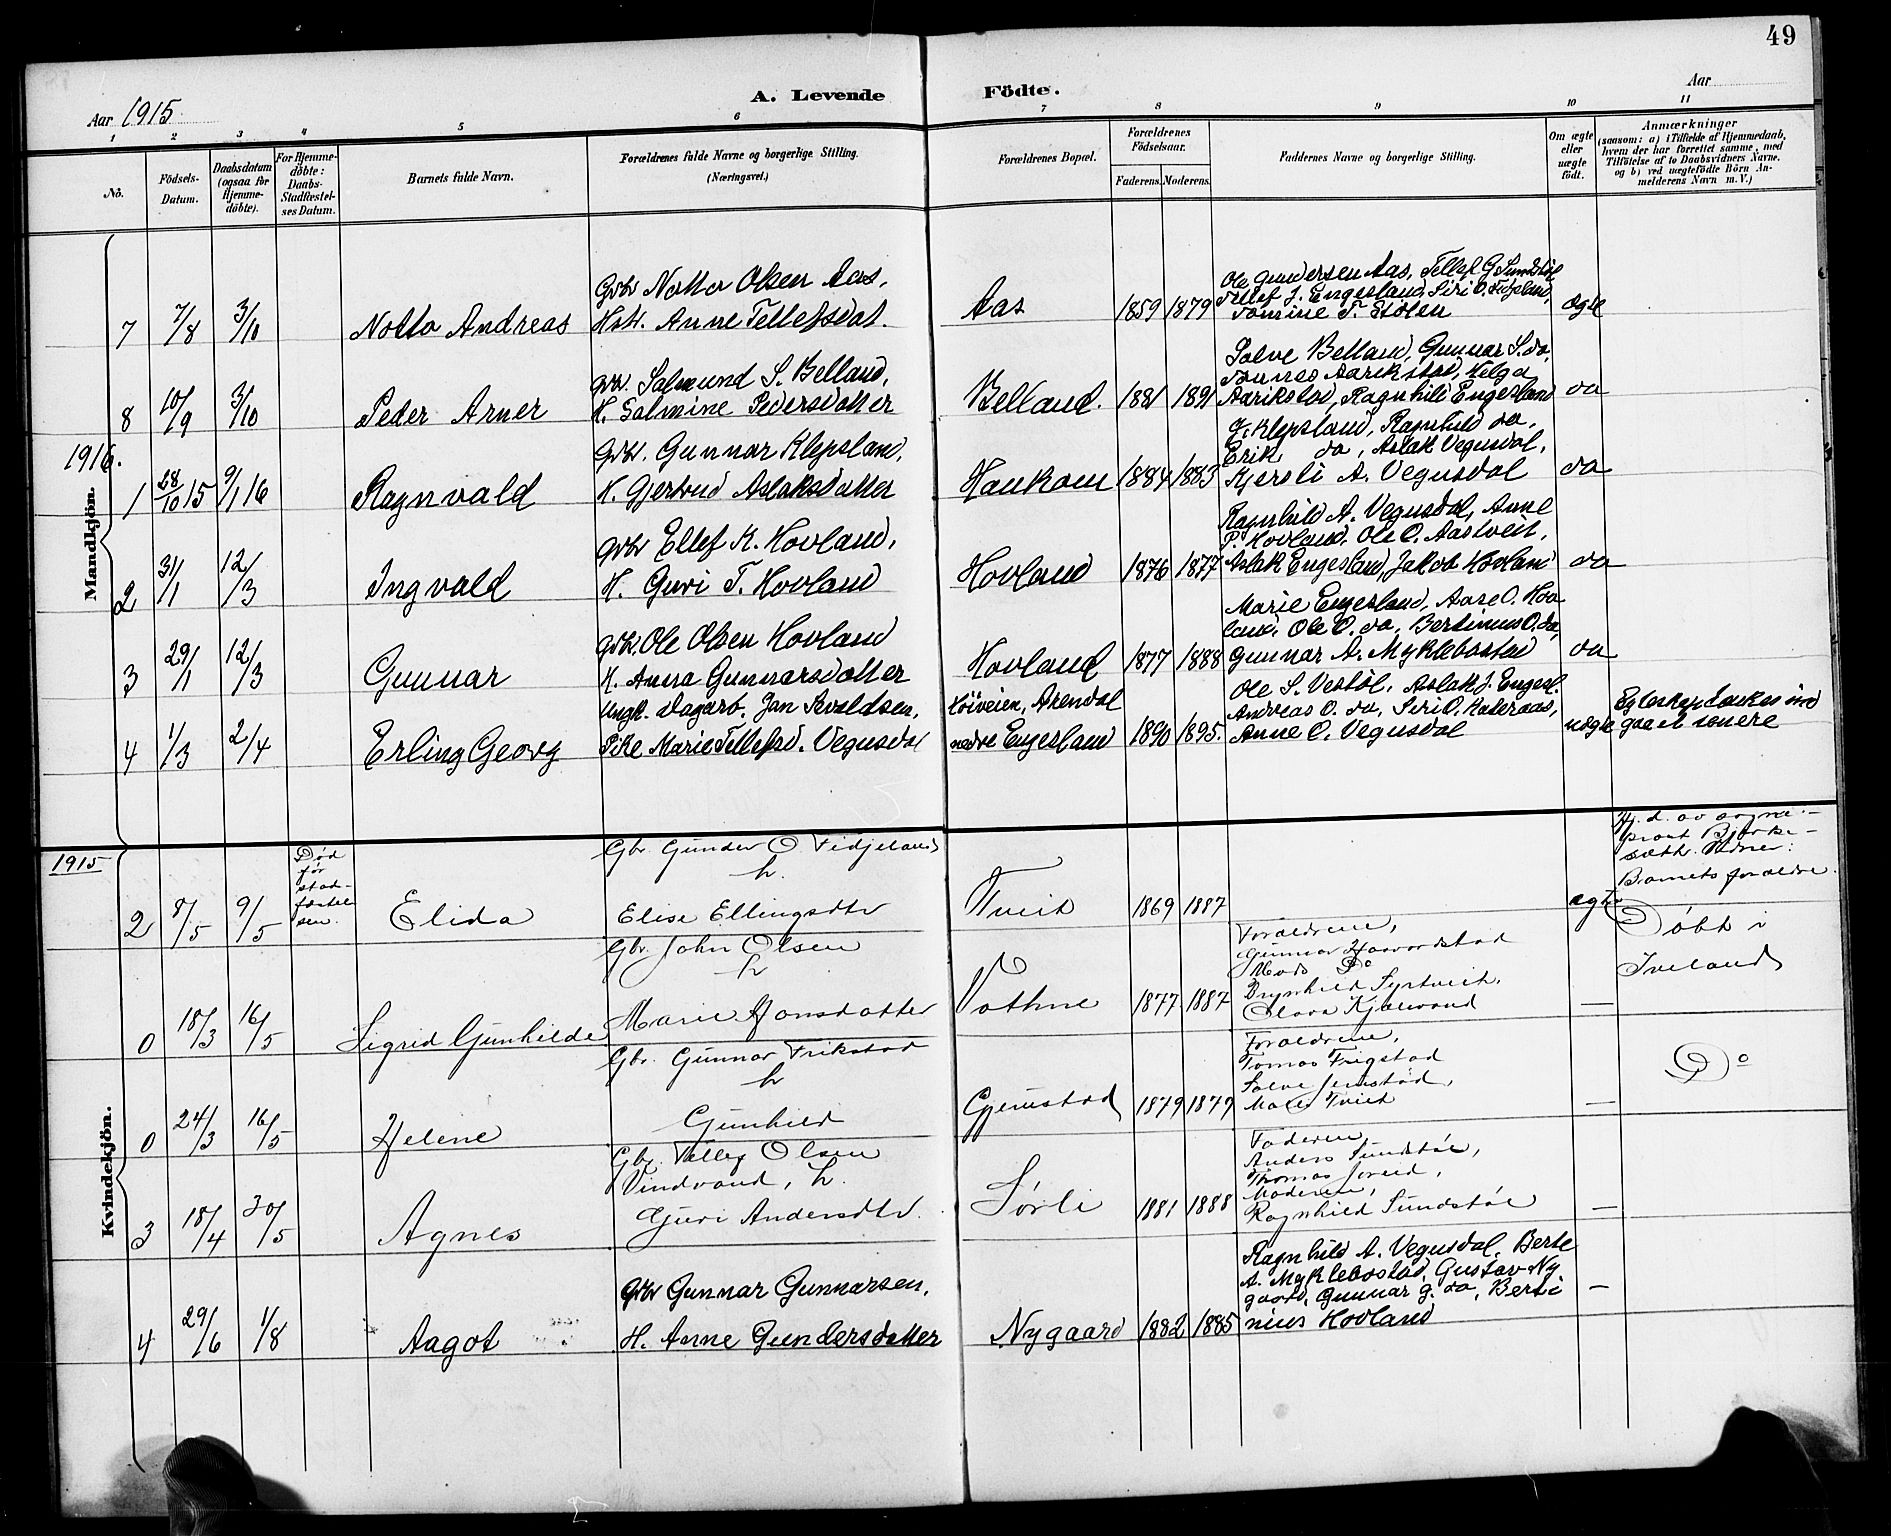 49
Aar 1915.
A. Levende Födte.
Aar
1 2 3 4 5 6 7 8 9 10 11
Nô.
Födsels-Datum.
Daabsdatum (ogsaa för Hjemme-döbte).
For Hjemme-döbte: Daabs-Stadfæstelses Datum.
Barnets fulde Navn.
Forældrenes fulde Navne og borgerlige Stilling. (Næringsvei.)
Forældrenes Bopæl.
Forældrenes Födselsaar.
Faderens. Moderens.
Faddernes Navne og borgerlige Stilling.
Om ægte eller uægte födt.
Anmærkninger
(saasom: a) i Tilfælde af Hjemmedaab, hvem der har forrettet samme, med Tilföielse af to Daabsvidners Navne. og b) ved uægtefödte Börn Anmelderens Navn m. V.)
Mandkjön.
7 7/8 3/10 Notto Andreas
Gbr Notto Olsen Aas,
Hstr. Anne Tellefsdat.
Aas 1859 1879
Ole Gundersen Aas, Tellef G. Sundstöl
Tellef J. Engesland, Siri O. Fidjeland,
Tomine T. Stölen
ægte
8 10/9 3/10 Peder Arner
Gbr. Salmund S. Belland,
H. Salmine Pedersdatter
Belland. 1881 1891
Salve Belland, Gunnar S. do,
Tonnes Aarikstad, Helga
Aarikstad, Ragnhild Engesland
do
1916.
1 28/10 15 9/1 16 Ragnvald
Gbr. Gunnar Klepsland,
H. Gjertrud Aslaksdatter
Haukom 1884 1883
G. Klepsland, Ragnhild do,
Erik do, Aslak Vegusdal,
Kjersti A. Vegusdal
do
2 31/1 12/3 Ingvald
Gbr Ellef K. Hovland,
H. Guri T. Hovland
Hovland 1876 1877
Ragnhild A. Vegusdal, Anne
P. Hovland, Ole O. Aastveit,
Aslak Engesland, Jakob Hovland
do
3 29/1 12/3 Gunnar
Gbr. Ole Olsen Hovland
H. Anna Gunnarsdatter
Hovland 1877 1888
Marie Engesland, Aase O. Hov
land, Ole O. do, Bertinus O. do,
Gunnar A. Myklebostad
do
4 1/3 2/4 Erling Georg
Ungk. Dagarb. Jan Evaldsen,
Pike Marie Tellefsd. Vegusdal
Höiveien, Arendal
nedre Engesland 1890 1895.
Ole S. Vestöl, Aslak J. Engesl.
Andreas O. do, Siri O. Haleraas,
Anne O. Vegusdal
uægte
Egteskap tænkes ind
gaaet senere
Kvindekjön.
1915
2 8/5 9/5
Död
för
stad-
fæstel
sen.
Elida
Gbr. Gunder O Fidjeland
h.
Elise Ellingsdtr
Tveit 1869 1887
ægte
Hj. d. av sogne-
prest Bjerke-
sæth. Vidner:
Barnets forældre.
0 18/3 16/5 Sigrid Gunhilde
Gbr. John Olsen
h
Marie Jonsdatter
Vathne 1877 1887
Forældrene,
Gunnar Haavordstad
Mads Do
Brynhild Syrtveit,
Olava Kjætevand
—
Döbt i
Iveland
0 24/3 16/5 Helene
Gbr. Gunnar Frikstad
h
Gunhild
Gjerustad 1879 1879
Forældrene,
Tomas Frigstad
Salve Jerustad,
Mari Tveit
—
Do
3 18/4 30/5 Agnes
Gbr. Tellef Olsen
Vindvand, h.
Guri Andersdtr.
Sörli 1881 1888
Faderen,
Anders Sundstöl,
Thomas Joreid,
Moderen,
Ragnhild Sundstöl
—
4 29/6 1/8 Aagot
Gbr Gunnar Gunnarsen,
H. Anne Gundersdatter
Nygaard 1882 1885
Ragnhild A. Vegusdal, Berte
A. Myklebostad, Gustav Ny
gaard, Gunnar G. do, Berti
nius Hovland
—